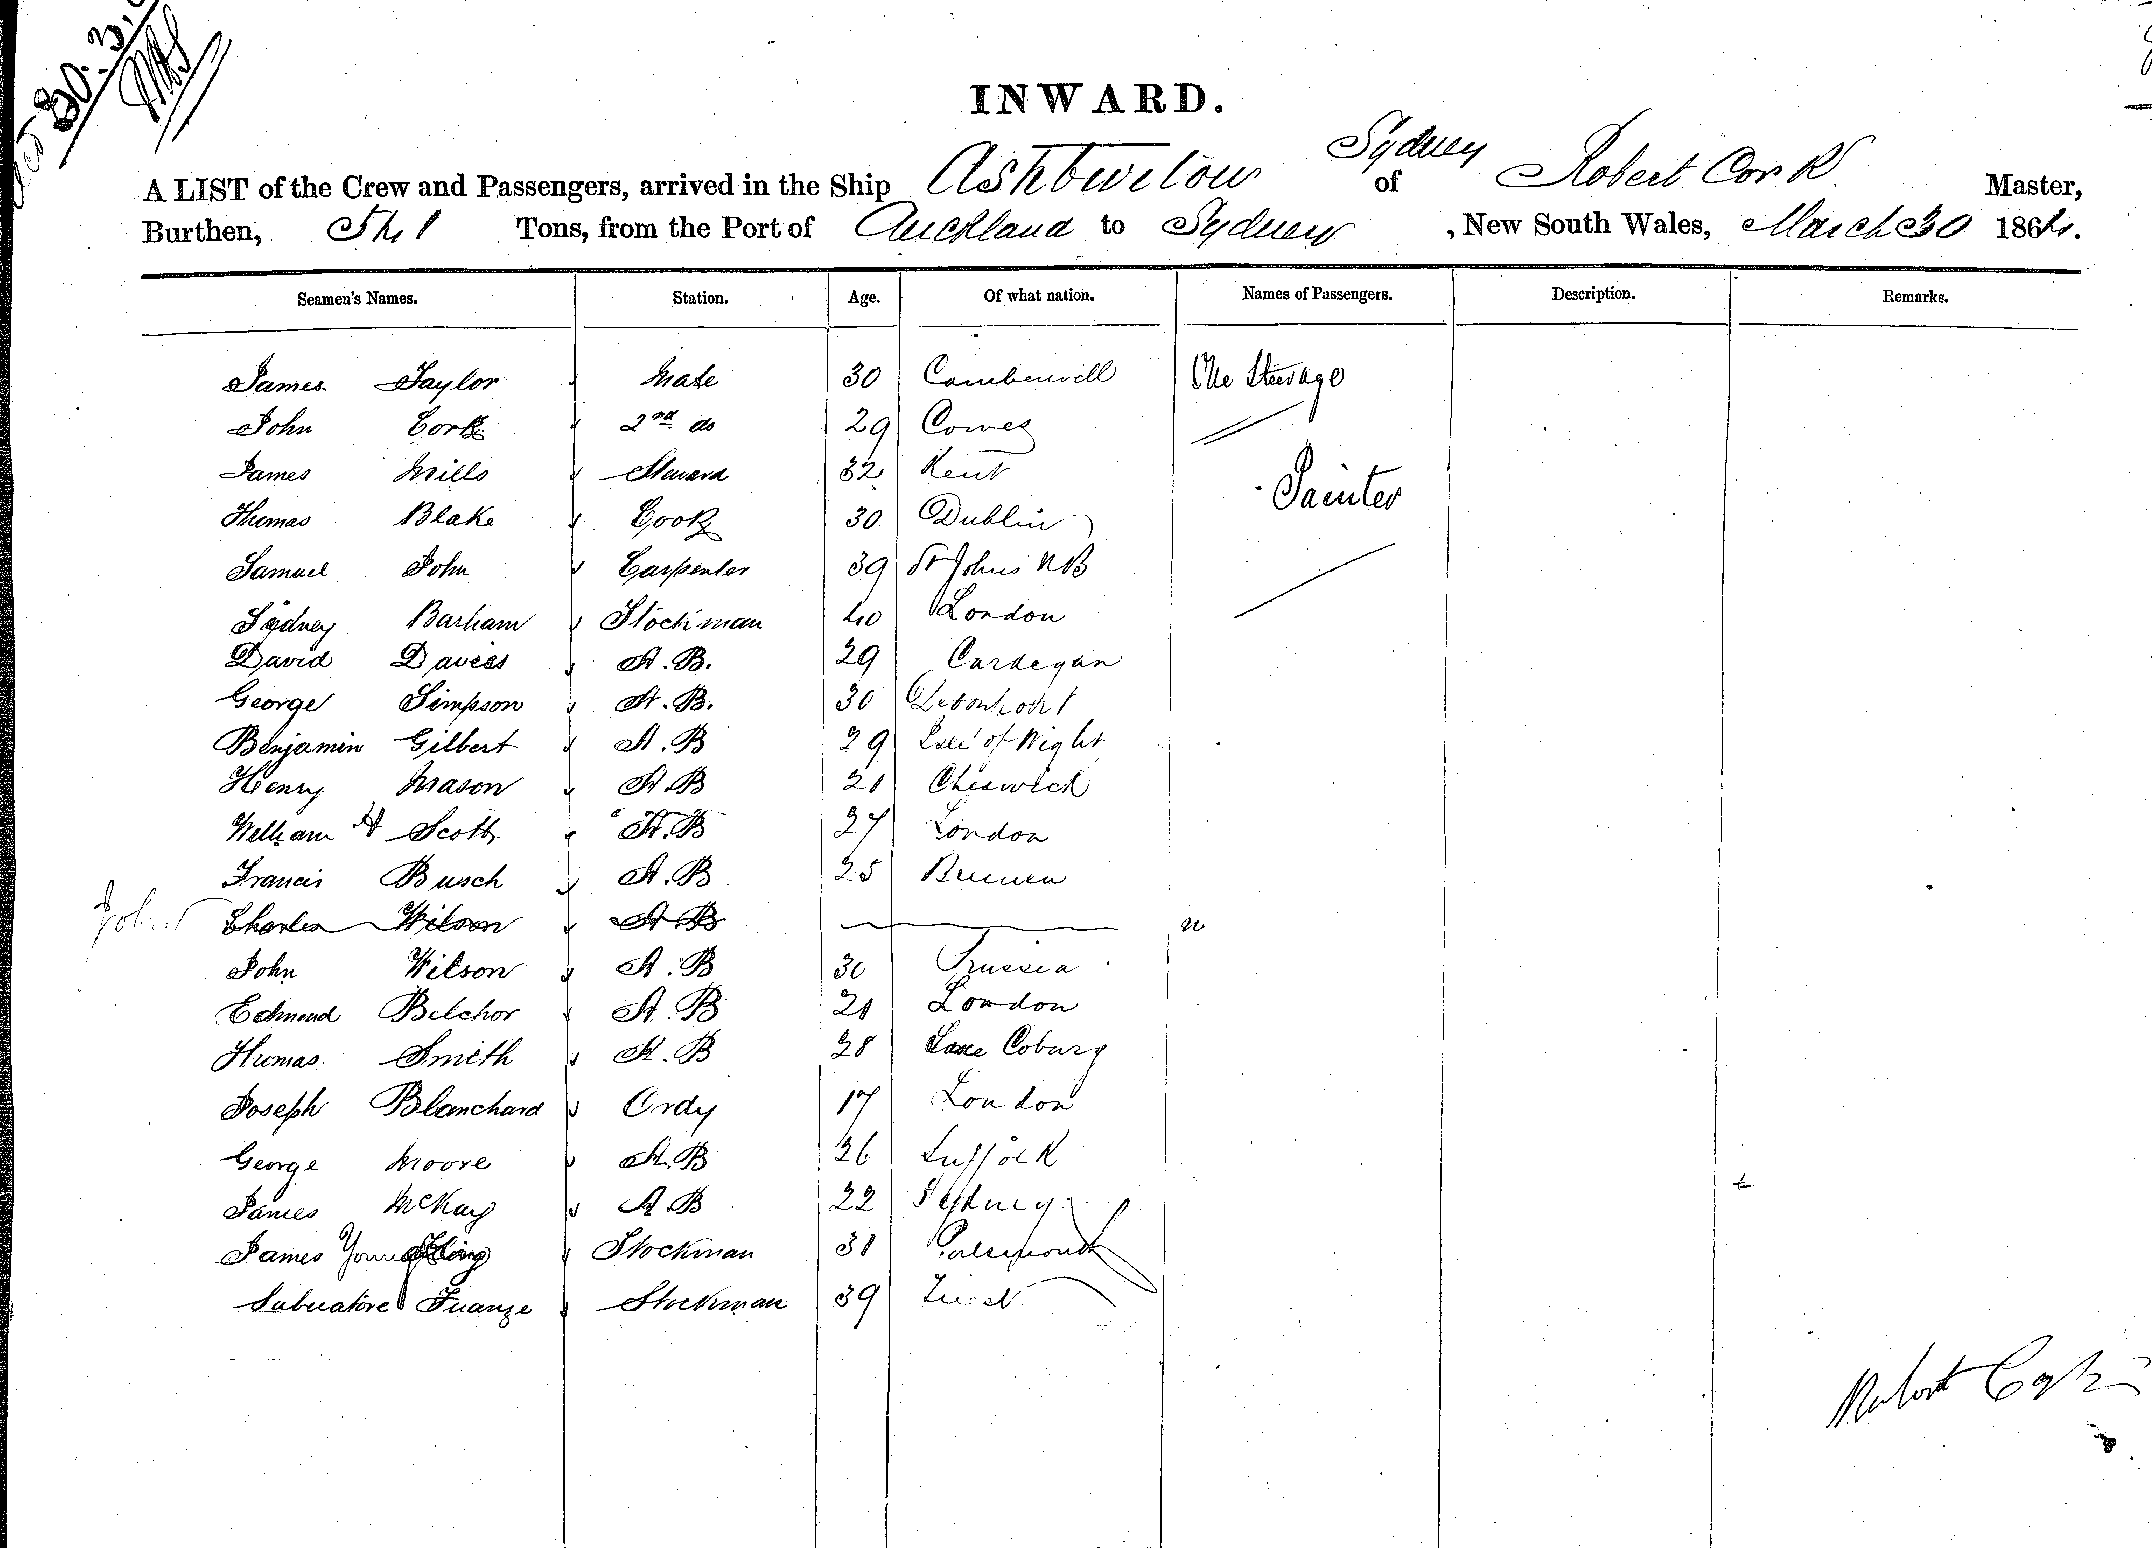 30.3.
INWARD.
A LIST of the Crew and Passengers, arrived in the Ship Ashburton of Sydney Robert Cork Master,
Burthen, 541 Tons, from the Port of Auckland to Sydney , New South Wales, March 30 1864.
Seamen's Names. Station. Age. Of what nation. Names of Passengers. Description. Remarks.
James Taylor Mate 30 Camberwell One Steerage
John Cork 2nd do 29 Cowes
James Mills Steward 32 Kent Painter
Thomas Blake Cook 30 Dublin
Samuel John Carpenter 39 St Johns NB
Sydney Barham Stockman 40 London
David Davies A.B. 29 Cardegan
George Simpson A.B. 30 Devonport
Benjamin Gilbert A.B 29 Isle of Wight
Henry Mason A.B 21 Cheswick
William H Scott A.B 27 London
Francis Busch A.B 25 Bremen
Charles Wilson A B
John Wilson A.B 30 Prussia
Edmond Belchor A.B 21 London
Thomas Smith A.B 28 Saxe Coburg
Joseph Blanchard Ordy 17 London
George Moore A.B 26 Suffolk
James McKay A B 22 Sydney
James Young Stockman 31 Portsmouth
Stockman 39
Robert Cork